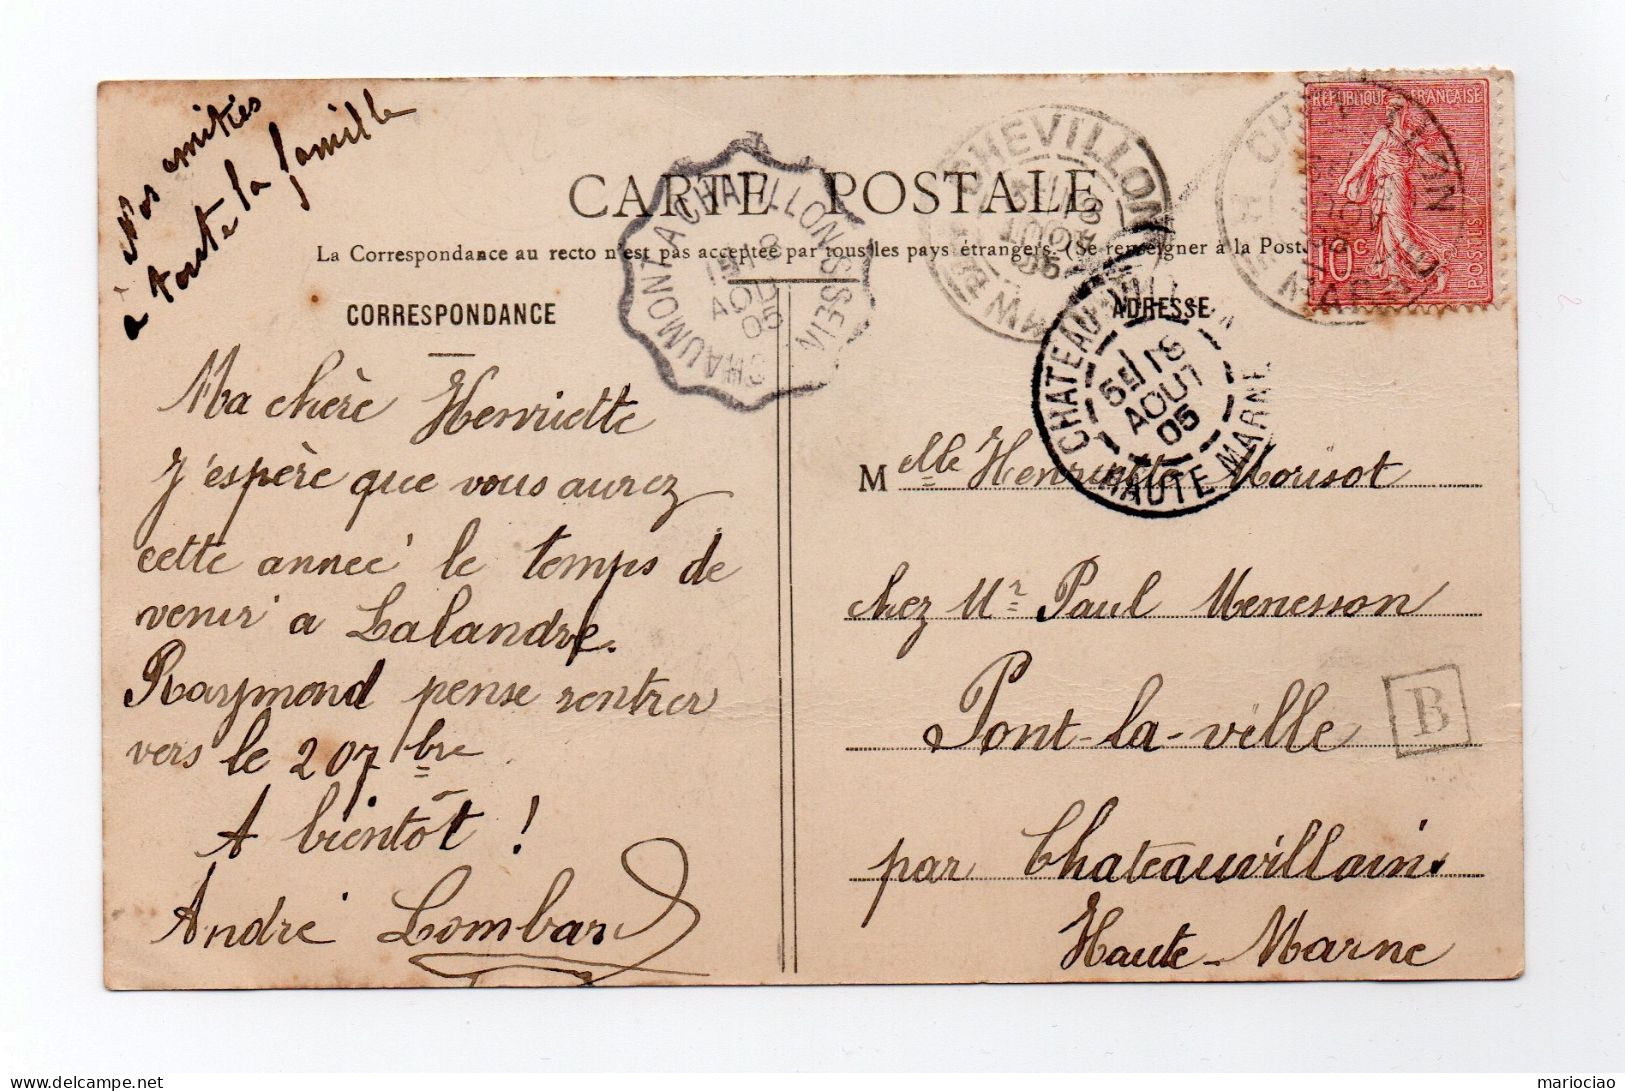 Nos amitiés
à toute la famille
CARTE POSTALE
La Correspondance au recto n'est pas acceptée par tous les pays étrangers. (Se renseigner à la Post
CORRESPONDANCE
ADRESSE
Ma chère Henriette
J'espère que vous aurez
cette année le temps de
venir a Lalandre.
Raymond pense rentrer
vers le 20 7bre
A bientôt !
André Lombard
Melle Henriette Morisot
chez Mr Paul Menesson
Pont-la-ville
par Chateauvillain.
Haute-Marne
B
CHAUMONT A CHATILLON-S-SEINE
8
AOUT
05
CHEVILLON
AOUT
05
CHATEAUVILLAIN
HAUTE MARNE
AOUT
05
REPUBLIQUE FRANÇAISE
10c
POSTES
delcampe.net
mariociao